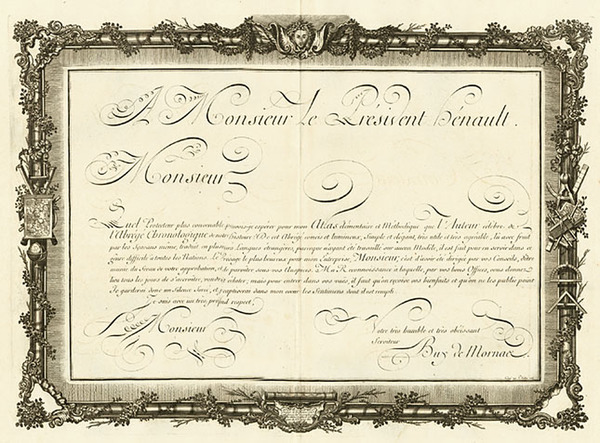 A Monsieur le Président hénault.
Monsieur
Quel Protecteur plus convenable pouvois-je espérer pour mon Atlas élémentaire et Méthodique que l'Auteur célebre de
l'Abrégé Chronologique de notre histoire! Abrégé concis et lumineux, Simple et élégant, très utile et très agréable, lu avec fruit
par les Savans même, traduit en plusieurs Langues étrangeres, puisque n'ayant été travaillé sur aucun Modele, il est fait pour en servir dans ce
genre difficile à toutes les Nations. Le Présage le plus heureux pour mon Entreprise, Monsieur, c'est d'avoir été dirigé par vos Conseils, d'être
munie du Sceau de votre approbation, et de paroître sous vos Auspices. Ma Reconnoissance à laquelle, par vos bons Offices, vous donnez
lieu tous les jours de s'accroître, voudroit éclater; mais pour entrer dans vos vues, il faut qu'on éprouve vos bienfaits et qu'on ne les publie point.
Je garderai donc un Silence forcé, et renfermerai dans mon cœur les Sentimens dont il est rempli.
Je suis avec un très profond respect,
Monsieur
Votre très humble et très obéissant
Serviteur
Buy de Mornas